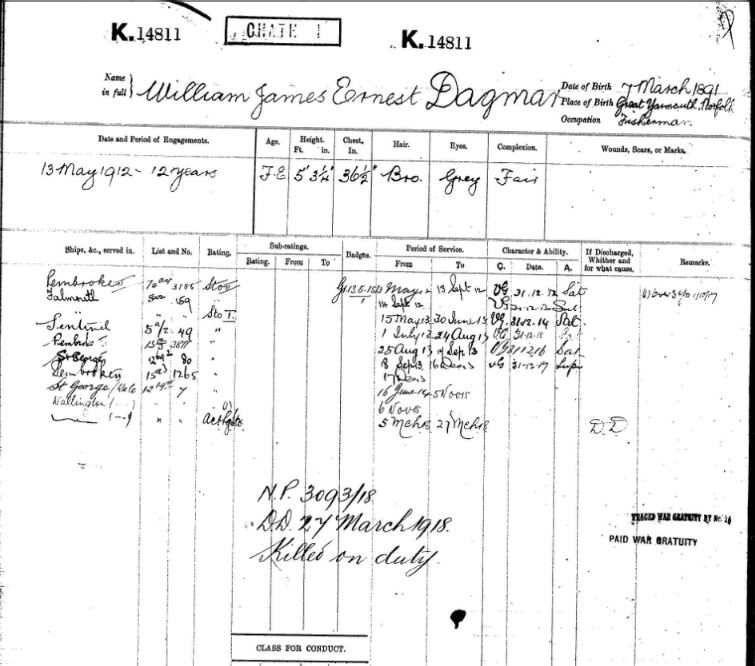 K.14811
CHATE 1
K.14811
Name in full William James Ernest Dagmar
Date of Birth 7 March 1891
Place of Birth Great Yarmouth, Norfolk
Occupation Fisherman
Date and Period of Engagements. Age. Height. Ft. in. Chest, In. Hair. Eyes. Complexion. Wounds, Scars, or Marks.
13 May 1912 - 12 years F.E 5' 3¼" 36½" Bro. Grey Fair
Ships, &c., served in. List and No. Rating. Sub-ratings. Badges. Period of Service. Character & Ability. If Discharged, Whither and for what cause. Remarks.
Rating. From To From To C. Date. A.
Pembroke II 3185 Sto II 13 May 12 13 Sept 12 VG 31.12.12 Sat
Falmouth 159 14 Sept 12 VG Sat
" " Sto I. 15 May 13 30 June 13 VG 31.12.14 Sat.
Sentinel 49 " 1 July 13 24 Aug 13 VG
Pembroke I. " 25 Aug 13 17 Sep 13 VG 31.12.16 Sat
St George 80 " 18 Sep 13 16 VG 31.12.17 Sup
Pembroke II 1265 " 17
St George 7 " 16 June 14 5 Nov 15
Wallington (---) " " 6 Nov 15
(---) " " 5 Mch 18 27 Mch 18 D.D
N.P. 3093/18
D.D. 27 March 1918.
Killed on duty.
TRACED WAR GRATUITY
PAID WAR GRATUITY
CLASS FOR CONDUCT.